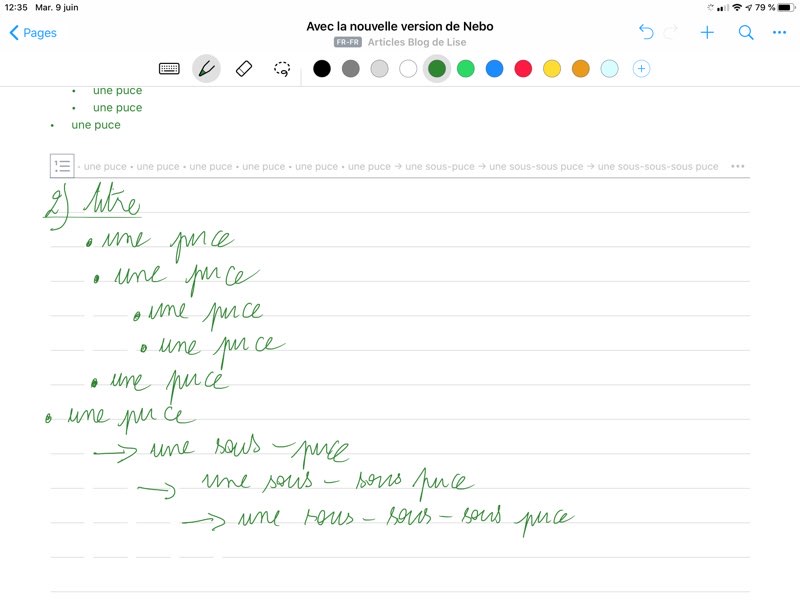 12:35 Mar. 9 juin 79 %
Pages
Avec la nouvelle version de Nebo
FR-FR Articles Blog de Lise
• une puce
• une puce
• une puce
• une puce • une puce • une puce • une puce • une puce • une puce → une sous-puce → une sous-sous puce → une sous-sous-sous puce
2) titre
• une puce
• une puce
• une puce
• une puce
• une puce
• une puce
→ une sous-puce
→ une sous-sous puce
→ une sous-sous-sous puce